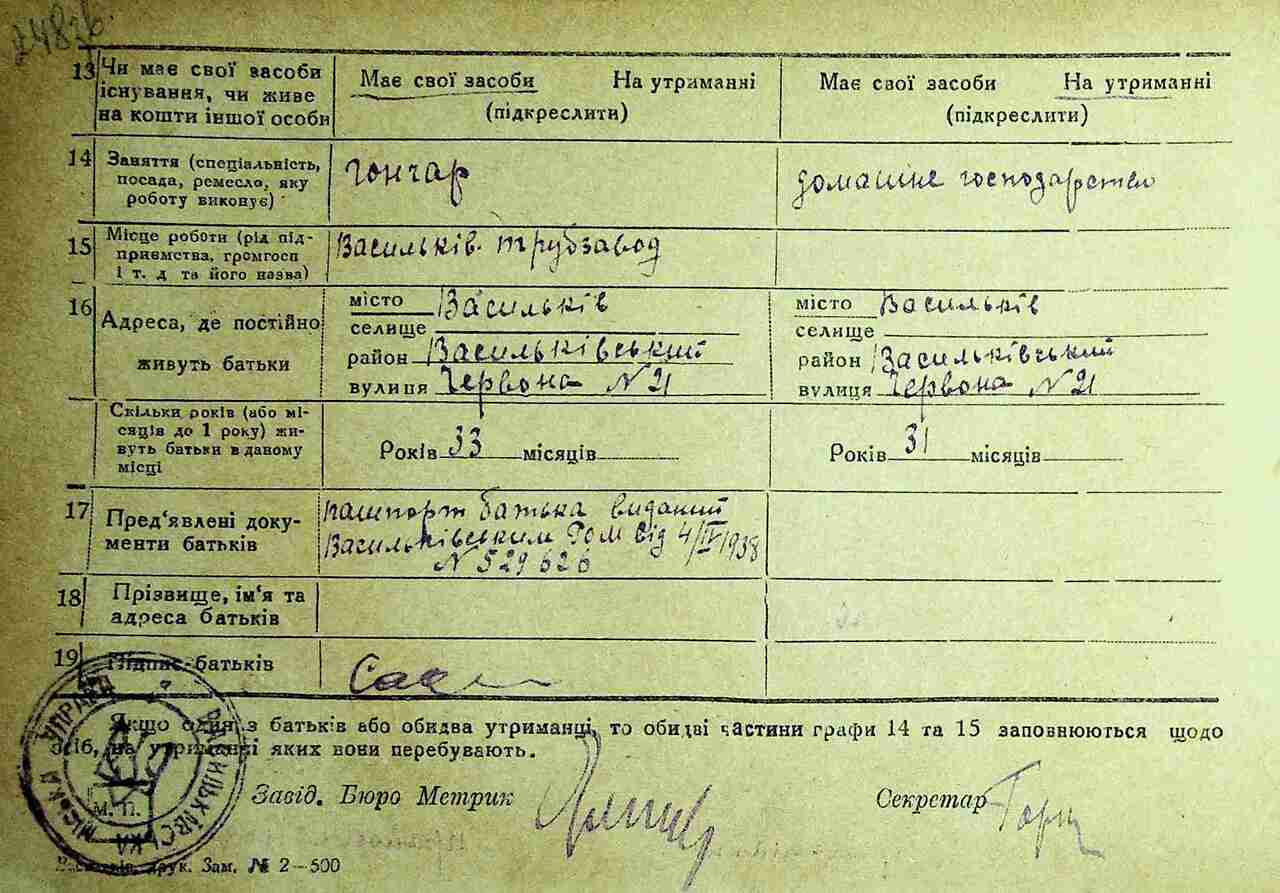 13 Чи має свої засоби існування, чи живе на кошти іншої особи
Має свої засоби На утриманні
(підкреслити)
Має свої засоби На утриманні
(підкреслити)
14 Заняття (спеціальність, посада, ремесло, яку роботу виконує)
гончар
домашнє господарство
15 Місце роботи (рід підприємства, громгосп і т. д та його назва)
Васильків. трубзавод
16 Адреса, де постійно живуть батьки
місто Васильків
селище
район Васильківський
вулиця Червона N 21
місто Васильків
селище
район Васильківський
вулиця Червона N 21
Скільки років (або місяців до 1 року) живуть батьки в даному місці
Років 33 місяців
Років 31 місяців
17 Пред'явлені документи батьків
паспорт батька виданий
Васильківським РОМ від 4/IV 1938
N 529626
18 Прізвище, ім'я та адреса батьків
19 Підпис батьків
Якщо один з батьків або обидва утриманці, то обидві частини графи 14 та 15 заповнюються щодо
осіб, на утриманні яких вони перебувають.
Завід. Бюро Метрик
Секретар
М. П.
ВАСИЛЬКІВСЬКА МІСЬКА УПРАВА
друк. Зам. № 2—500